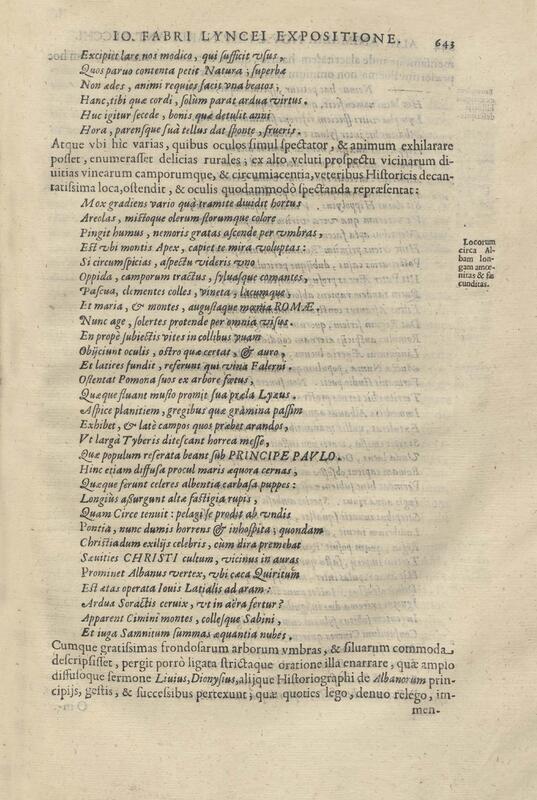 IO. FABRI LYNCEI EXPOSITIONE. 643
Excipiet lare nos modico, qui sufficit vsus,
Quos paruo contenta petit Natura; superbæ
Non ædes, animi requies facit vna beatos;
Hanc, tibi quæ cordi, solùm parat ardua virtus.
Huc igitur secede, bonis quæ detulit anni
Hora, parensque suà tellus dat sponte, frueris.
Atque vbi hic varias, quibus oculos simul spectator, & animum exhilarare
posset, enumerasset delicias rurales; ex alto veluti prospectu vicinarum di-
uitias vinearum camporumque, & circumiacentia, veteribus Historicis decan-
tatissima loca, ostendit, & oculis quodammodò spectanda repræsentat:
Mox gradiens vario quà tramite diuidit hortus
Areolas, mistoque olerum florumque colore
Pingit humus, nemoris gratas ascende per vmbras,
Est vbi montis Apex, capiet te mira voluptas:
Si circumspicias, aspectu videris vno
Oppida, camporum tractus, syluasque comantes,
Pascua, clementes colles, vineta, lacumque,
Et maria, & montes, augustaque mœnia ROMÆ.
Nunc age, solertes protende per omnia visus.
En propè subiectis vites in collibus vuam
Obijciunt oculis, ostro quæ certat, & auro,
Et latices fundit, referunt qui vina Falerni.
Ostentat Pomona suos ex arbore fœtus,
Quæque fluant musto promit sua præla Lyæus.
Aspice planitiem, gregibus quæ gràmina passim
Exhibet, & latè campos quos præbet arandos,
Vt largà Tyberis ditescant horrea messe,
Quæ populum referata beant sub PRINCIPE PAVLO.
Hinc etiam diffusa procul maris æquora cernas,
Quæque ferunt celeres albentia carbasa puppes:
Longiùs assurgunt altæ fastigia rupis,
Quam Circe tenuit: pelagi se prodit ab vndis
Pontia, nunc dumis horrens & inhospita; quondam
Christiadum exilijs celebris, cùm dira premebat
Sæuities CHRISTI cultum, vicinus in auras
Prominet Albanus vertex, vbi cæca Quiritum
Est ætas operata Iouis Latialis ad aram:
Ardua Soractis ceruix, vt in aëra fertur?
Apparent Cimini montes, collesque Sabini,
Et iuga Samnitum summas æquantia nubes.
Locorum
circa Al-
bam lon-
gam amœ-
nitas & fœ
cunditas.
Cumque gratissimas frondosarum arborum vmbras, & siluarum commoda
descripsisset, pergit porrò ligata strictaque oratione illa enarrare, quæ amplo
diffusoque sermone Liuius, Dionysius, alijque Historiographi de Albanorum prin-
cipijs, gestis, & successibus pertexunt; quæ quoties lego, denuo relego, im-
men-